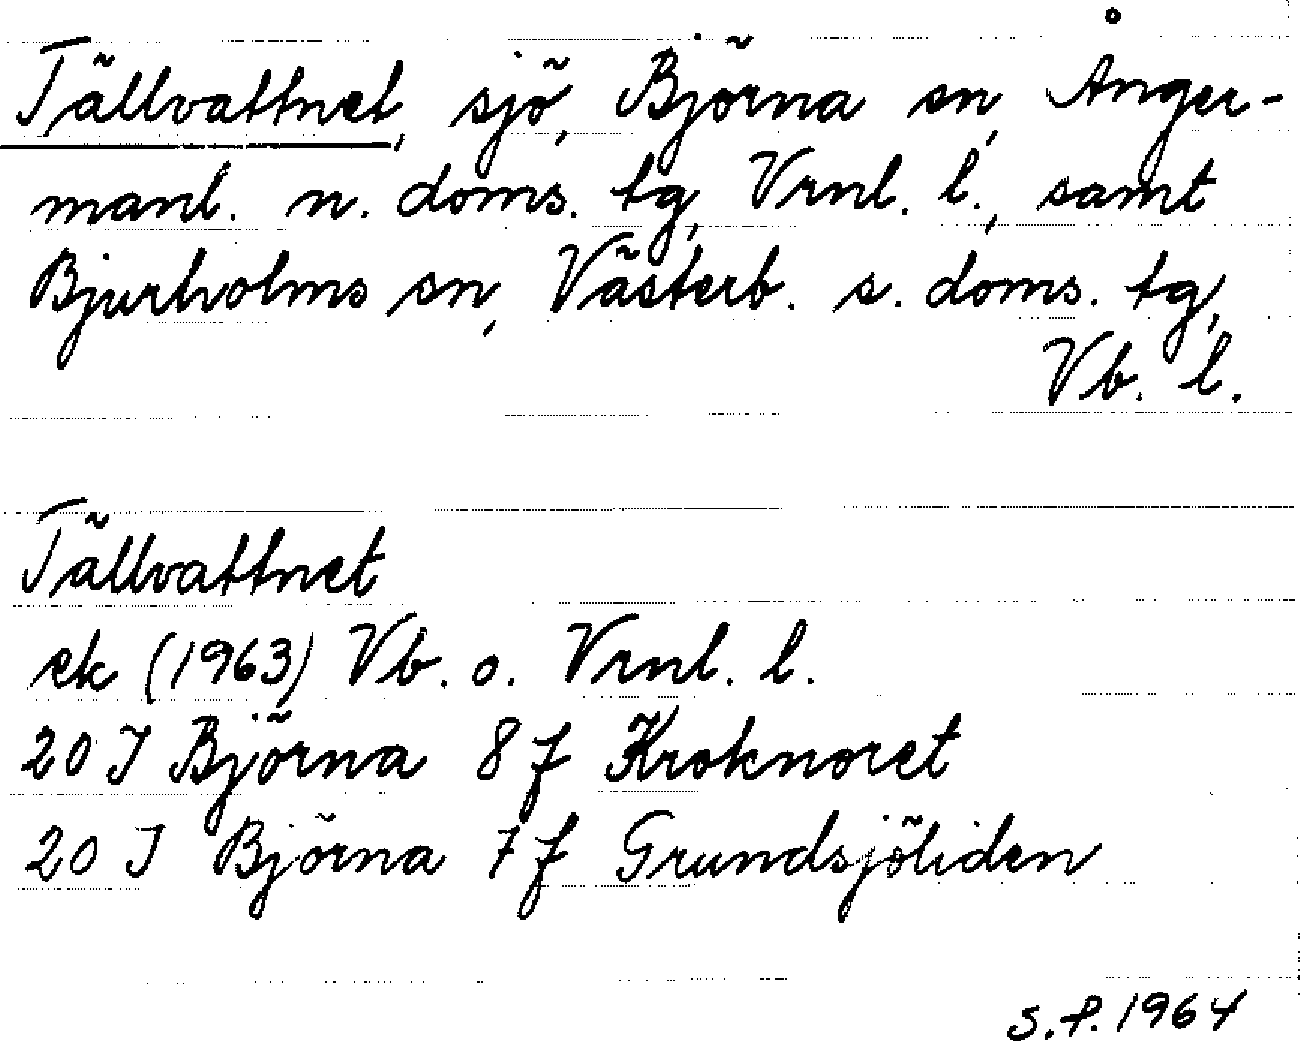 Tällvattnet, sjö, Björna sn, Ånger-
manl. n. doms. tg, Vrnl. l., samt
Bjurholms sn, Västerb. s. doms. tg,
Vb. l.
Tällvattnet
ek (1963) Vb. o. Vrnl. l.
20 J Björna 8 f Kroknoret
20 J Björna 7 f Grundsjöliden
S.P. 1964